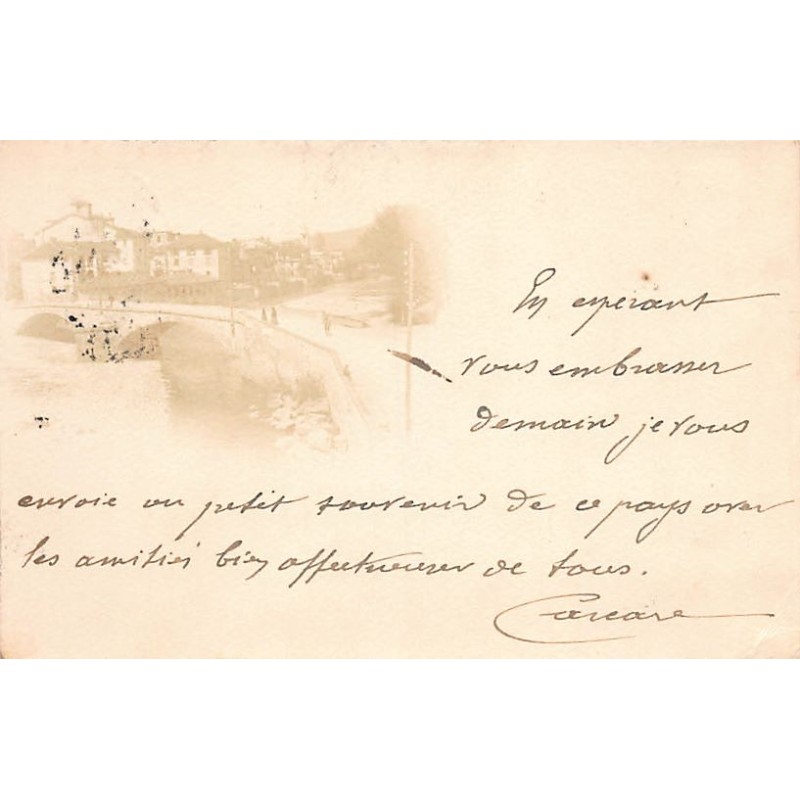 En espérant
vous embrasser
demain je vous
envoie un petit souvenir de ce pays avec
les amitiés bien affectueuses de tous.